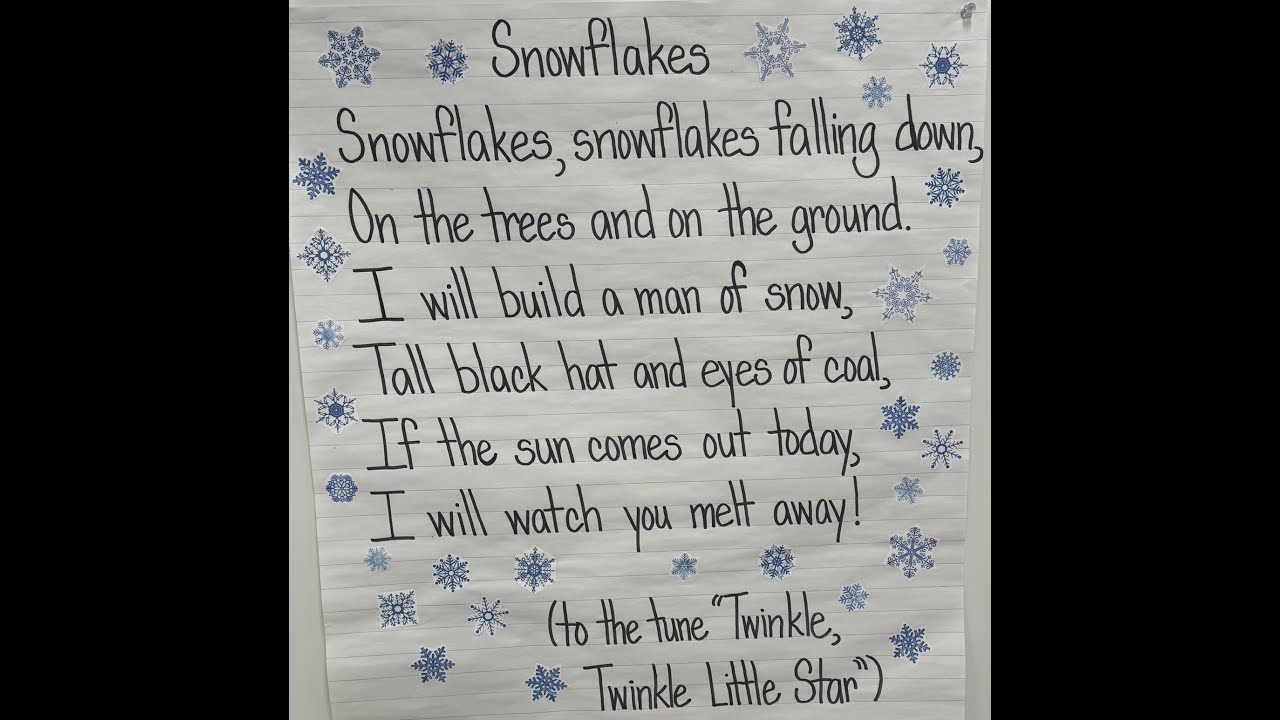 Snowflakes
Snowflakes, snowflakes falling down,
On the trees and on the ground.
I will build a man of snow,
Tall black hat and eyes of coal,
If the sun comes out today,
I will watch you melt away!
(to the tune "Twinkle,
Twinkle Little Star")